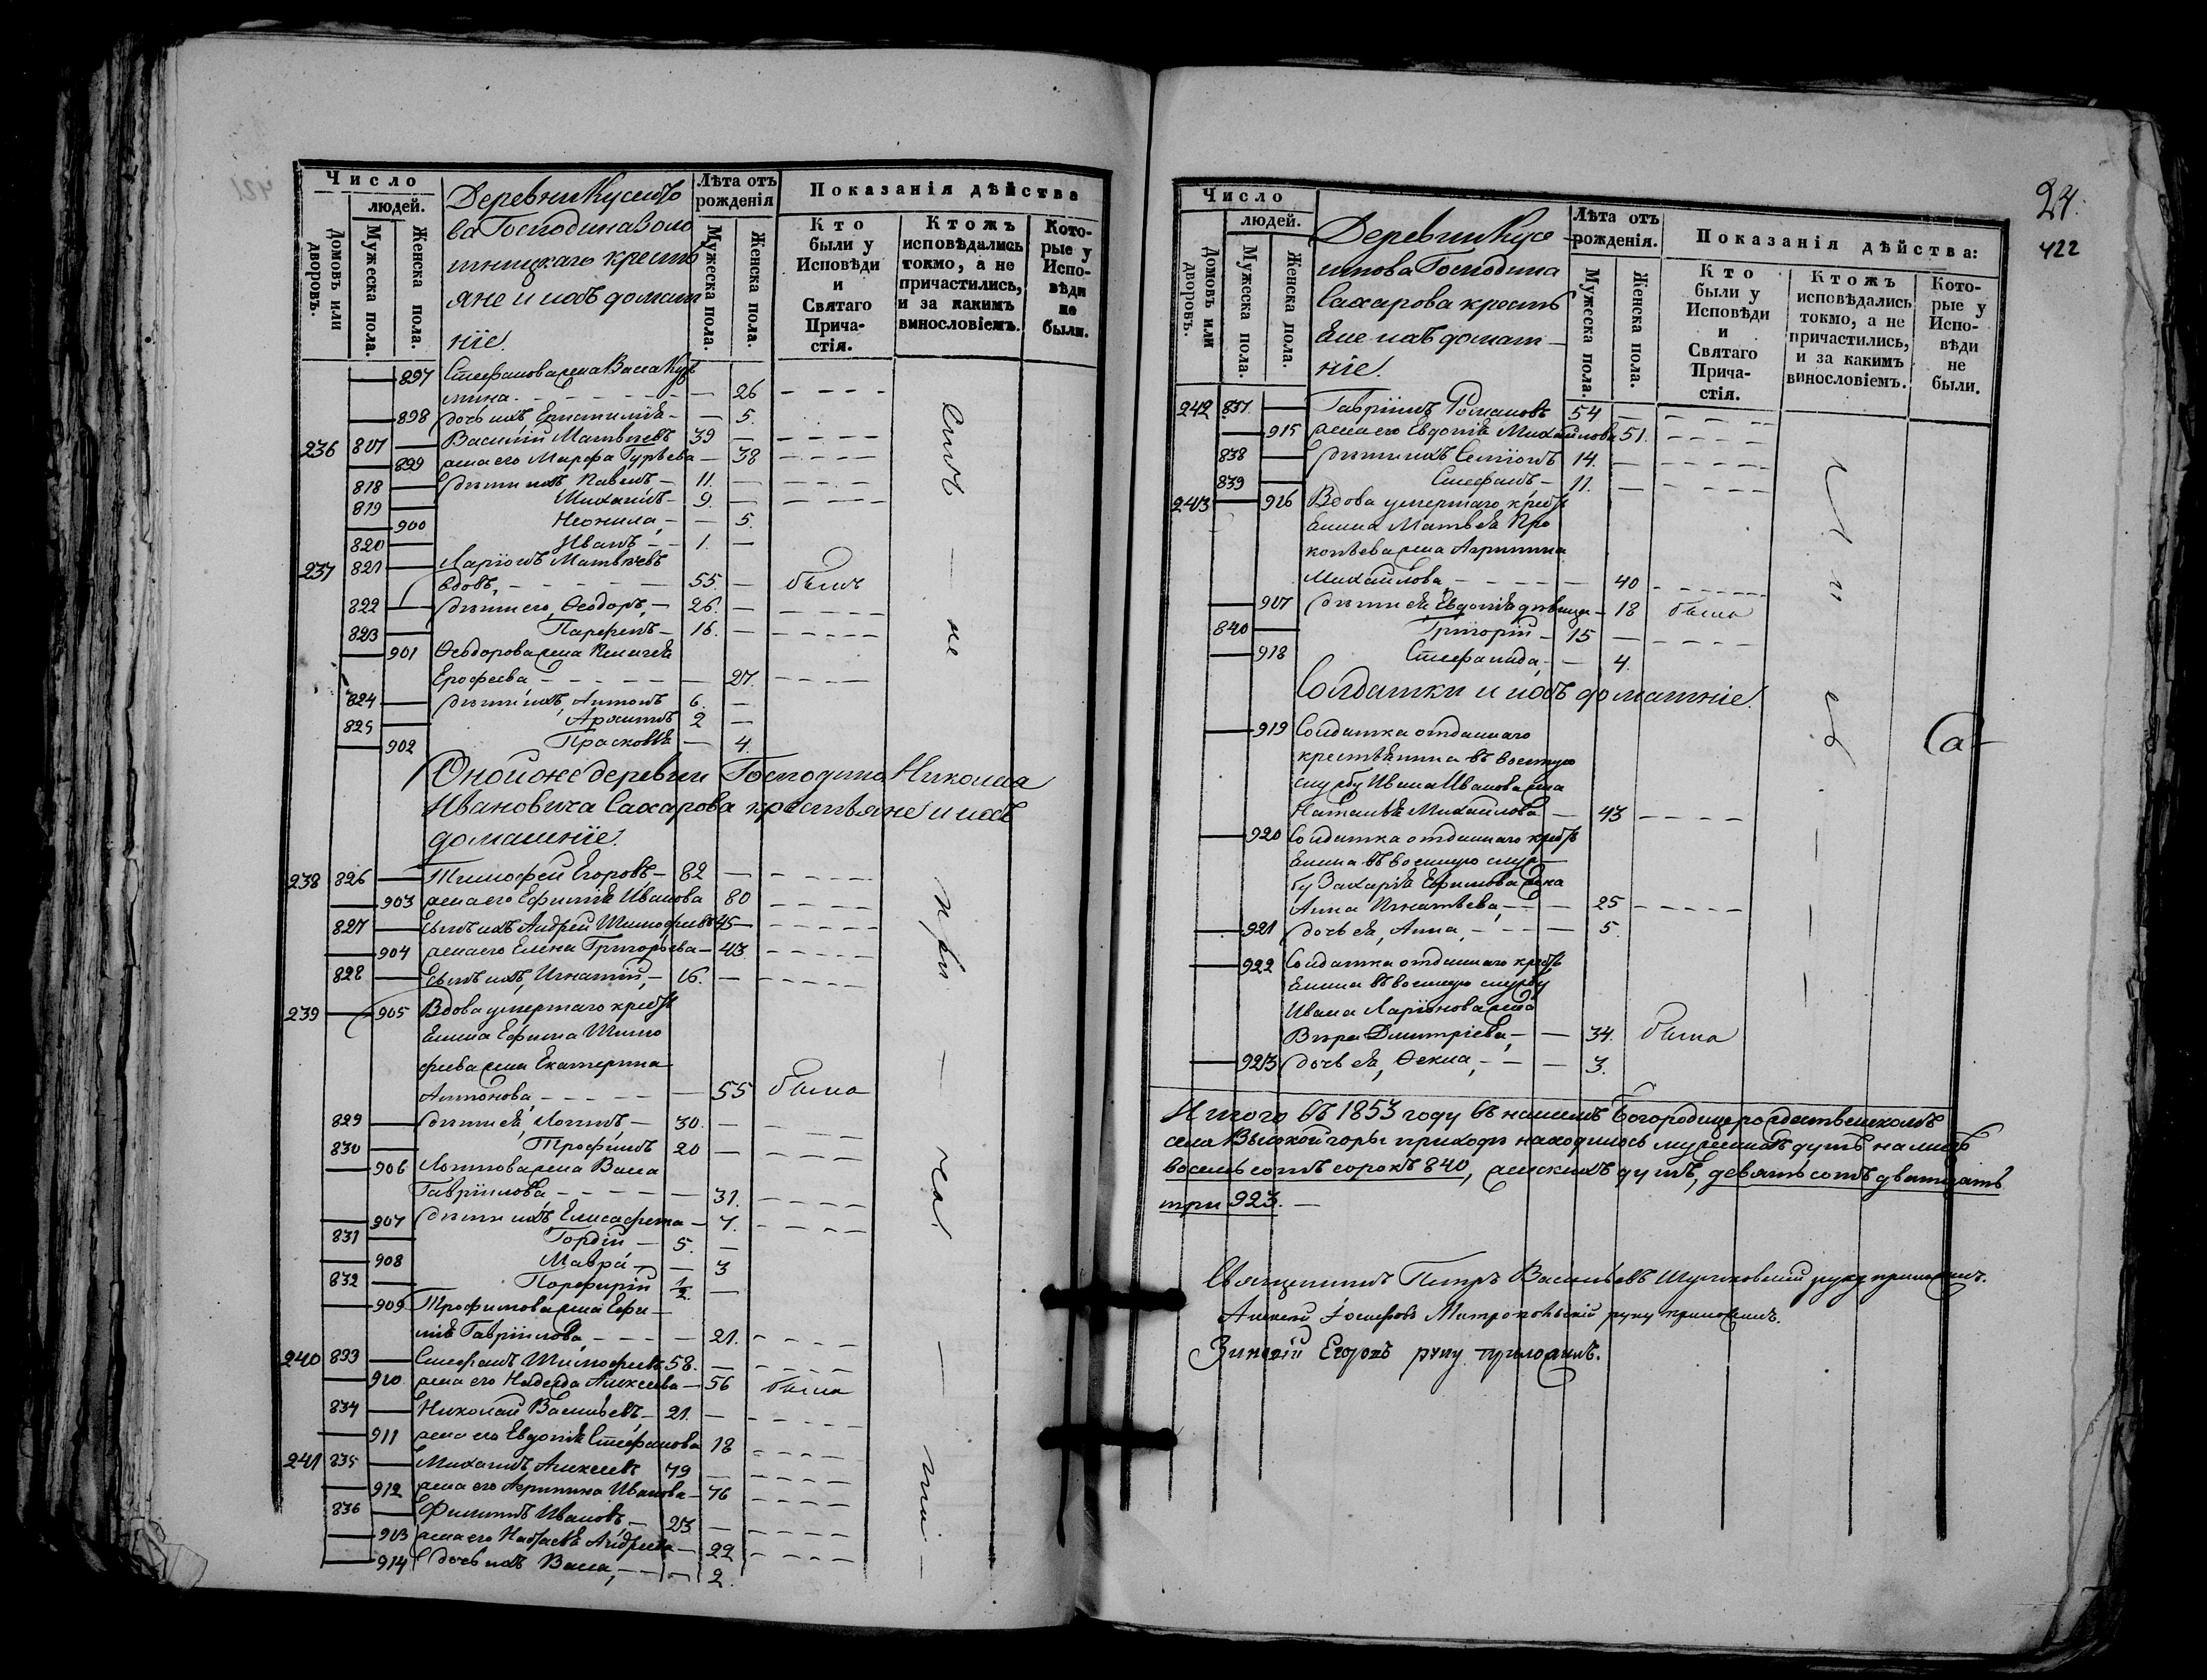 Число
людей.
Домовъ или дворовъ.
Мужеска пола.
Женска пола.
Деревни
ва Господина Воло
крестъ
яне и ихъ домаш
ніе.
Лѣта отъ рожденія
Мужеска пола.
Женска пола.
Показанія дѣйства
Кто были у Исповѣди и Святаго Прича-стія.
Ктожъ исповѣдались токмо, а не причастились, и за какимъ винословіемъ.
Кото-рые у Испо-вѣди не были.
897 Стефанова жена Васса Кузь
мина 26
898 дочь ихъ 5.
236 817 Василій Матвѣевъ 39
899 жена его Марфа Гурьева 38
818 дѣти ихъ Павелъ 11.
819 Михаилъ 9.
900 Неонила 5.
820 Иванъ 1.
237 821 Ларіонъ Матвѣевъ
вдовъ, 55 былъ
822 дѣти его, Ѳеодоръ, 26.
823 Парфенъ 16.
901 Ѳеодорова жена
Ерофеева 27.
824 дѣти ихъ, Антонъ 6.
825 2
902 Прасковья 4.
Оной же деревни Господина Николая
Ивановича Сахарова крестьяне и ихъ
домашніе.
238 826 Тимофей Егоровъ 82
903 жена его Ефимія Иванова 80
827 Сынъ ихъ Андрей Тимофеевъ 45
904 жена его Елена Григорьева 43
828 Сынъ ихъ, Игнатій, 16.
239 905 Вдова умершаго кресть
янина Ефима Тимо
феева жена Екатерина
Антонова, 55 была
829 дѣти ея, Логинъ 30.
830 Трофимъ 20
906 Логинова жена Васса
Гавріилова, 31.
907 дѣти ихъ Елисавета 7.
831 Гордій 5.
908 Мавра 3
832 Порфирій 1/2.
909 Трофимова жена Ефи
мія Гавріилова 21.
240 833 Стефанъ Тимофеевъ 58.
910 жена его Надежда Алексеева 56 была
834 Николай Васильевъ 21.
911 жена его Евдокія Стефанова 18
241 835 Михаилъ Алексеевъ 79
912 жена его Агрипина Иванова 76
836 Филиппъ Ивановъ 23
913 жена его Наталья Андреева 22
914 дочь ихъ Васса, 2.
не
при
ча
24.
422
Число
людей.
Домовъ или дворовъ.
Мужеска пола.
Женска пола.
Деревни
Господина
Сахарова кресть
яне ихъ домаш
ніе.
Лѣта отъ рожденія.
Мужеска пола.
Женска пола.
Показанія дѣйства:
Кто были у Исповѣди и Святаго Прича-стія.
Ктожъ исповѣдались токмо, а не причастились, и за какимъ винословіемъ.
Кото-рые у Испо-вѣди не были.
242 837. Гавріилъ Романовъ 54
915 жена его Евдокія Михайлова 51.
838 дѣти ихъ Семіонъ 14.
839 Стефанъ 11.
243 916 Вдова умершаго кресть
янина Матвея Про
копьева жена Агрипина
Михайлова, 40
917 дѣти ея Евдокія дѣвица 18 была
840 Григорій 15
918 Стефанида, 4.
Солдатки и ихъ домашніе.
919 Солдатка отданнаго
крестьянина въ военную
службу Ивана Иванова жена
Наталья Михайлова 43
920 Солдатка отданнаго кресть
янина въ военную служ
бу Захарія Ефимова жена
Анна Игнатьева, 25
921 дочь ея, Анна, 5.
922 Солдатка отданнаго кресть
янина въ военную службу
Ивана Ларіонова жена
Вера Дмитріева, 34. была
923 дочь ея, Ѳекла, 3.
Итого въ 1853 году въ нашемъ Богородицерождественскомъ
села Высокой горы приходѣ находилось мужескихъ душъ на лицо
восемьсотъ сорокъ 840, женскихъ душъ, девятьсотъ двадцать
три 923.
Священникъ Петръ Васильевъ руку приложилъ.
Алексей Іосифовъ Митропольскій руку приложилъ.
Зиновій Егоровъ руку приложилъ.